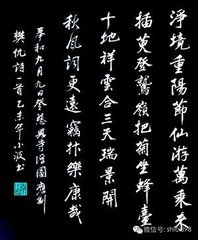 淨境重陽節仙游萬乘来
插萸登鷲嶺把菊坐蜂臺
十地祥雲合三天瑞景開
秋風詞更遠竊抃樂康哉
奉和九月九日登慈恩寺浮圖應制
樊忱詩一首乙未年小波書
微信号: